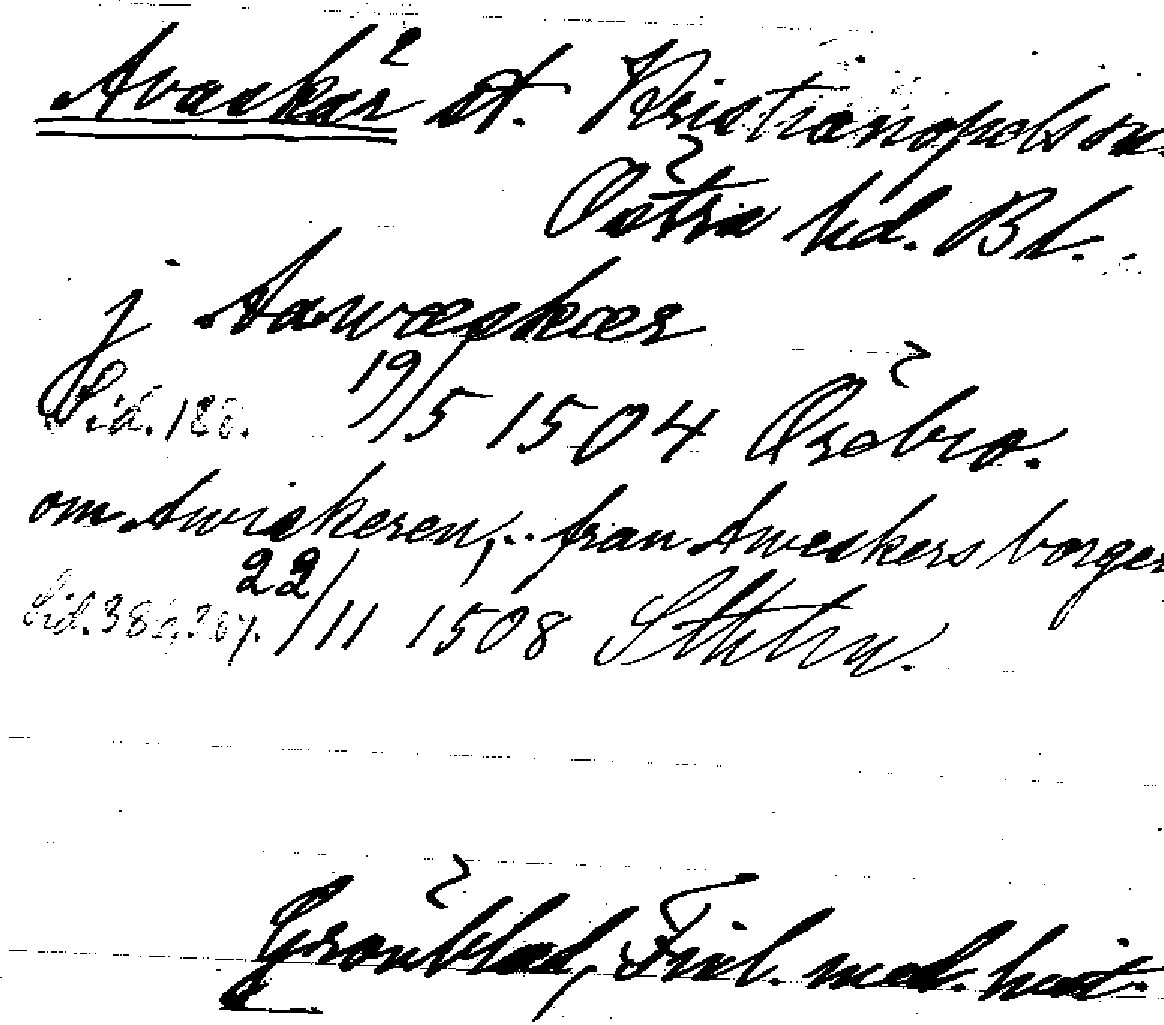 Avaskär st. Kristianopels sn.
Östra hd. Bl.
j Aawæskær
Sid. 188. 19/5 1504 Örebro.
om Awiskeren,.. fran Aweskers borger
Sid. 386, 387. 22/11 1508 Sthlm.
Grönblad, Finl. med. hist.